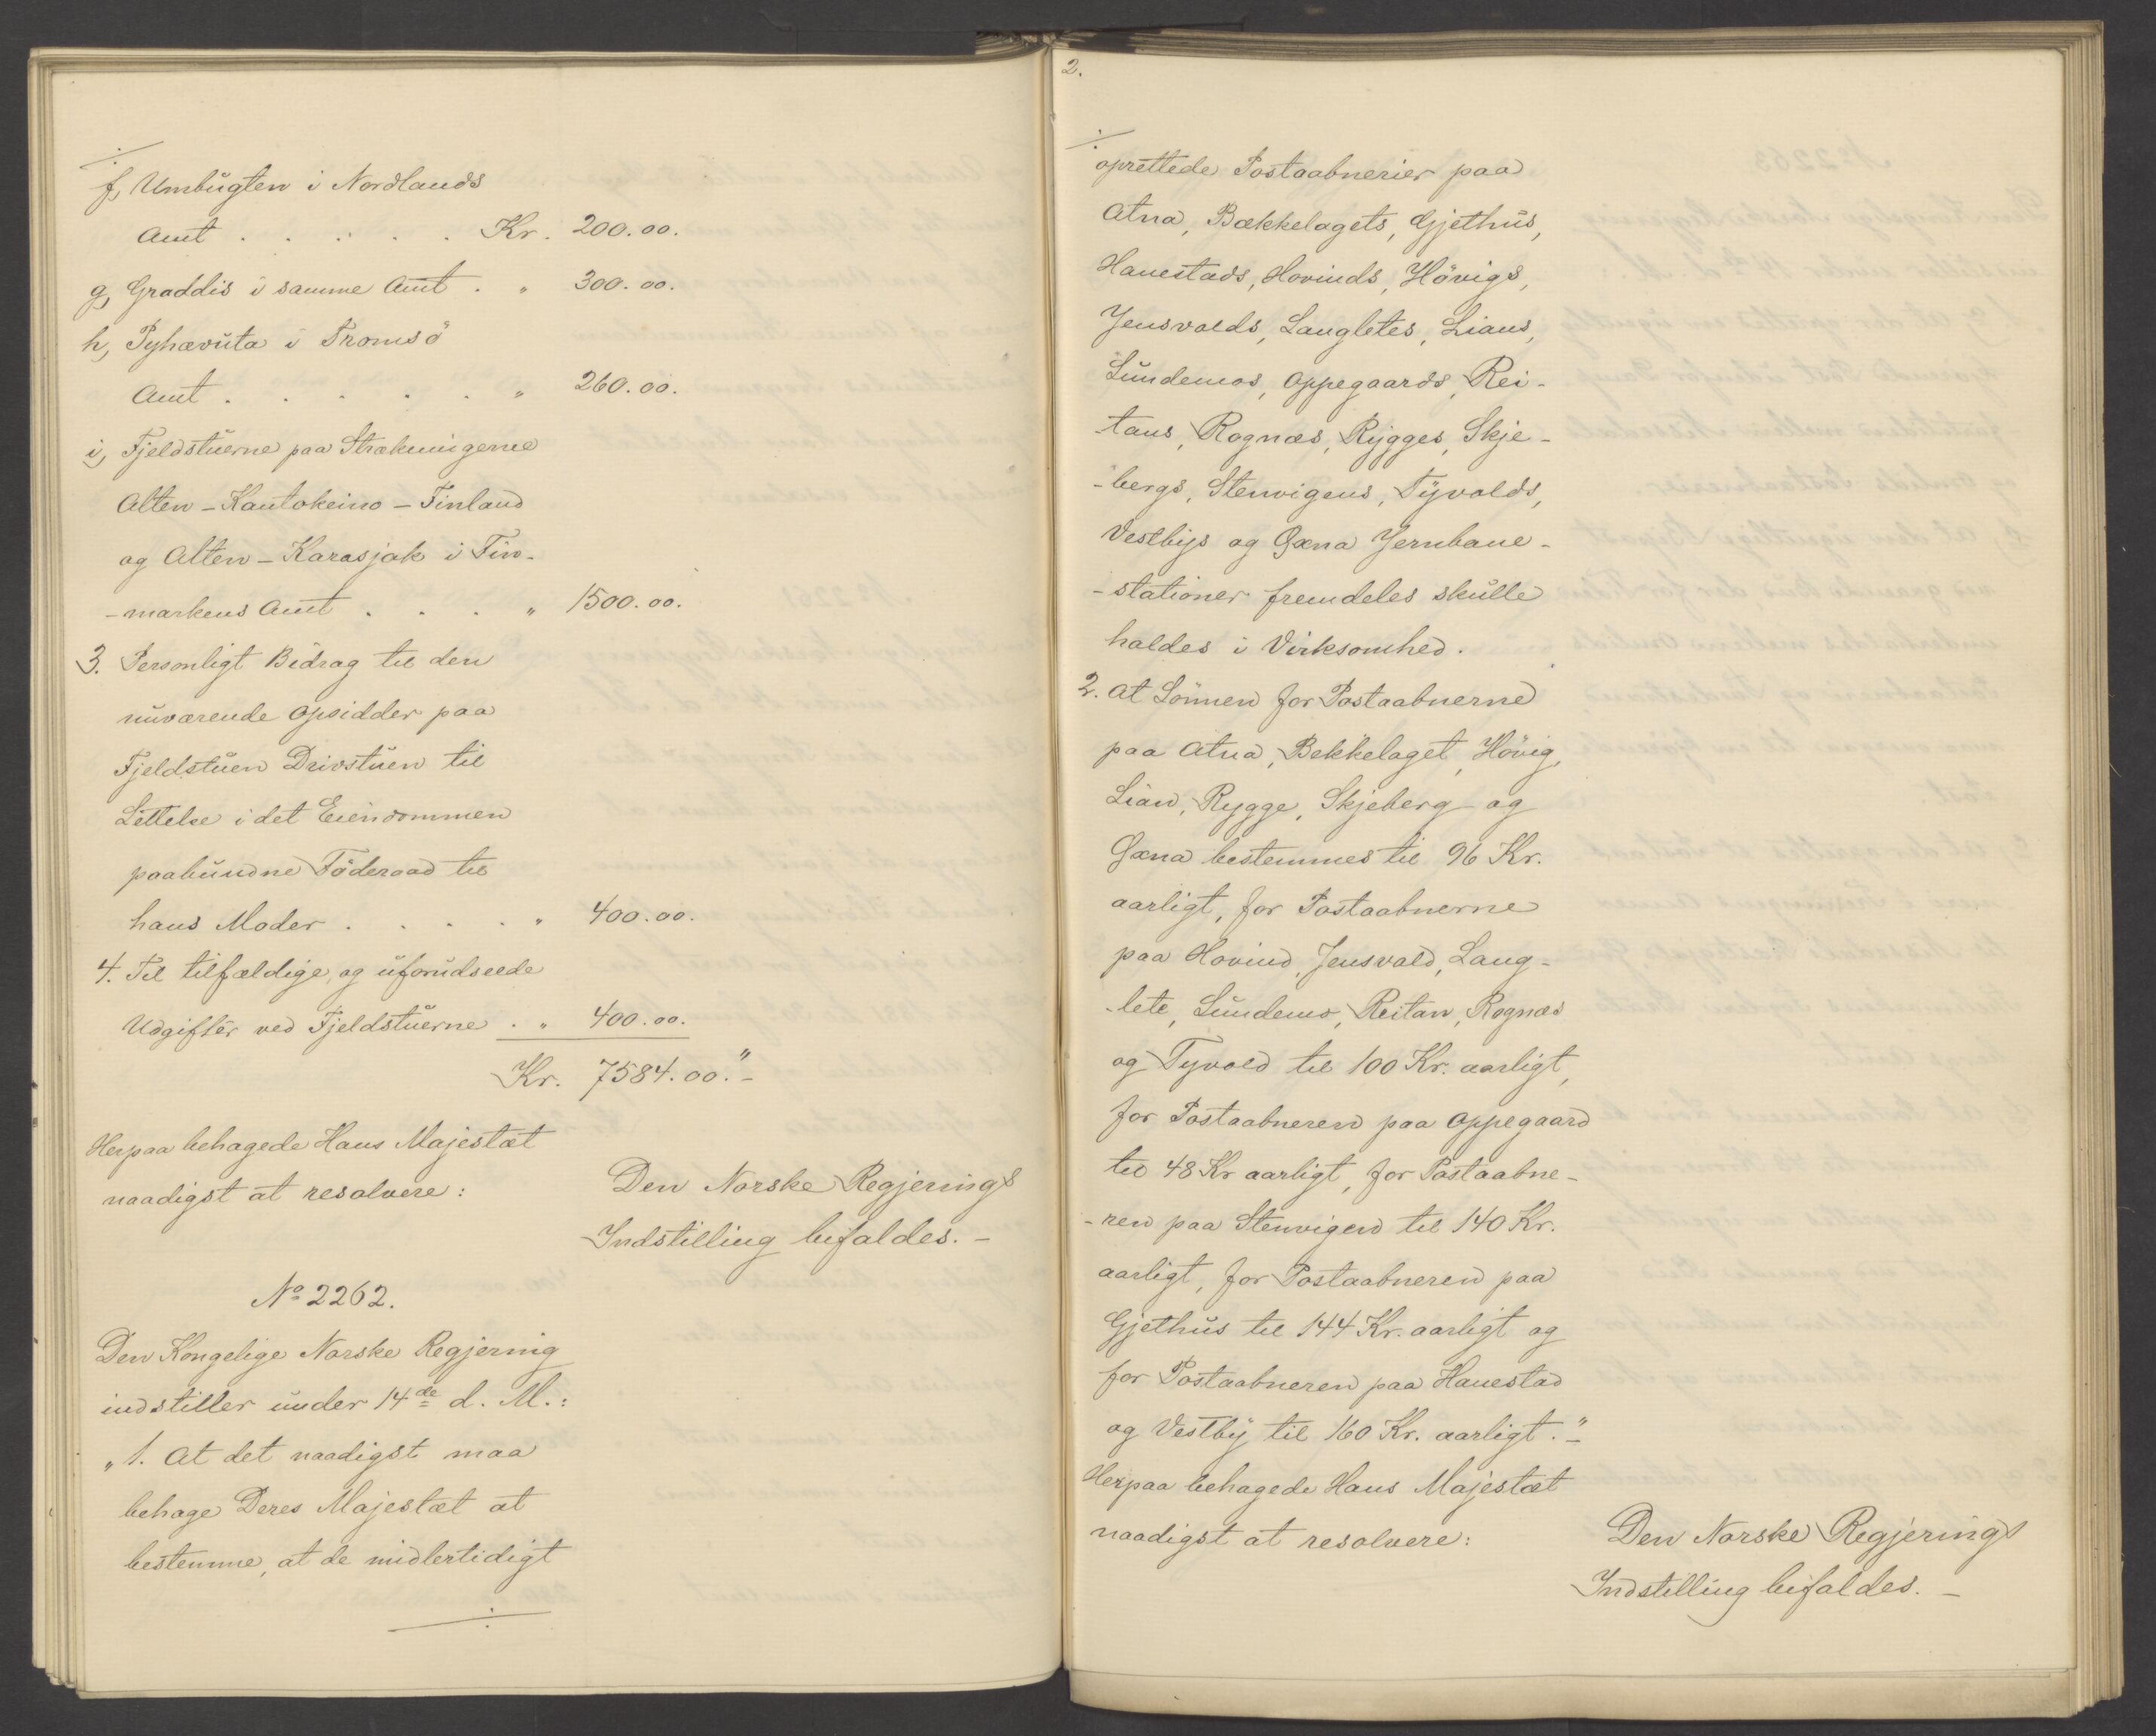 ./.
f, Umbugten i Nordlands
Amt . . . . . Kr. 200.00.
g, Graddis i samme Amt . " 300.00.
h, Pyhævuta i Tromsö
Amt . . . . . " 260.00.
i, Fjeldstuerne paa Strækningerne
Alten - Kautokeino - Finland
og Alten - Karasjok i Fin-
-markens Amt . . . " 1500.00.
3. Personligt Bidrag til den
nuværende Opsidder paa
Fjeldstuen Drivstuen til
Lettelse i det Eiendommen
paabundne Föderaad til
hans Moder . . . . " 400.00.
4. Til tilfældige og uforudseede
Udgifter ved Fjeldstuerne . " 400.00.
Kr. 7584.00." -
Herpaa behagede Hans Majestæt
naadigst at resolvere:
Den Norske Regjerings
Indstilling bifaldes. -
No 2262.
Den Kongelige Norske Regjering
indstiller under 14de d. M.:
"1. At det naadigst maa
behage Deres Majestæt at
bestemme, at de midlertidigt
./.
2.
./.
oprettede Postaabnerier paa
Atna, Bækkelagets, Gjethus,
Hanestads, Hovinds, Hövigs,
Jensvolds, Langletes, Lians,
Lundemos, Oppegaards, Rei-
tans, Rognæs, Rygges, Skje-
-bergs, Stenvigens, Tyvolds,
Vestbys og Gæna Jernbane-
-stationer fremdeles skulle
holdes i Virksomhed.
2. At Lönnen for Postaabnerne
paa Atna, Bekkelaget, Hövig,
Lian, Rygge, Skjeberg og
Gæna bestemmes til 96 Kr.
aarligt, for Postaabnerne
paa Hovind, Jensvold, Lang-
-lete, Lundemo, Reitan, Rognæs
og Tyvold til 100 Kr. aarligt,
for Postaabneren paa Oppegaard
til 48 Kr aarligt, for Postaabne-
-ren paa Stenvigen til 140 Kr.
aarligt, for Postaabneren paa
Gjethus til 144 Kr. aarligt og
for Postaabneren paa Hanestad
og Vestby til 160 Kr. aarligt." -
Herpaa behagede Hans Majestæt
naadigst at resolvere:
Den Norske Regjerings
Indstilling bifaldes. -